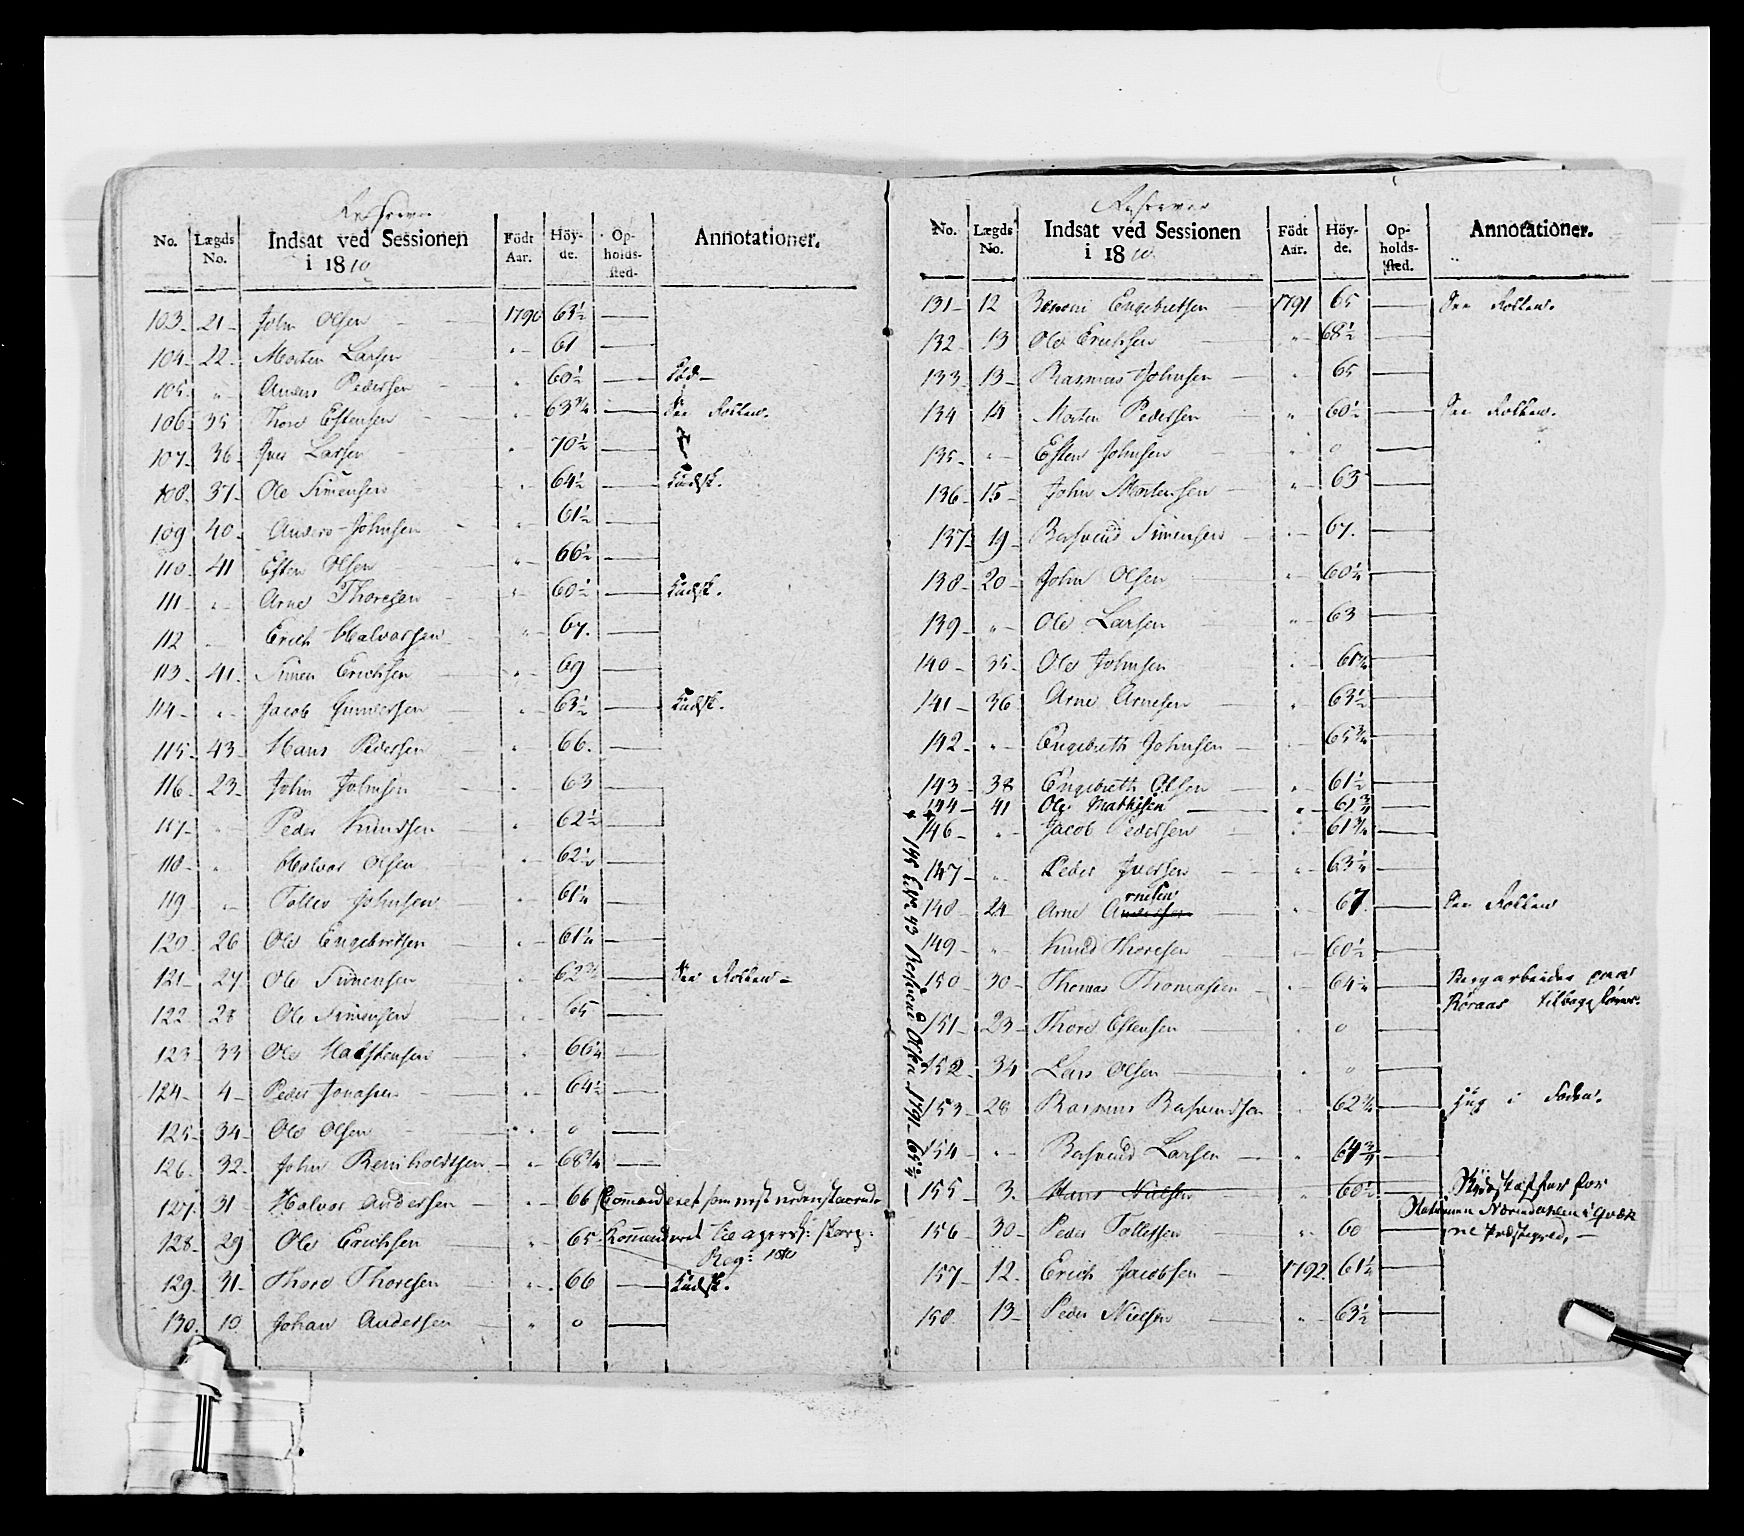 Reserver
No. Lægds No. Indsat ved Sessionen i 1810 Födt Aar. Höyde. Opholdssted. Annotationer.
103 21 John Olsen 1790 63½
104 22 Morten Larsen " 61
105 " Anders Pedersen " 60½ Död
106 35 Thore Estensen " 63¾ See Rollen.
107 36 Iver Larsen " 70½
108 37 Ole Simensen " 64½ Kudsk.
109 40 Anders Johnsen " 61½
110 41 Esten Olsen " 66½
111 " Arne Thoresen " 60½ Kudsk.
112 " Erich Halvorsen " 67.
113 41 Simen Erichsen " 69
114 " Jacob Gunnersen " 63½ Kudsk.
115 43 Hans Pedersen " 66.
116 23 John Johnsen " 63
117 " Peder Knudsen " 62½
118 " Halvor Olsen " 62½
119 " Tollev Johnsen " 61¼
120 26 Ole Engebretsen " 61¼
121 27 Ole Simensen " 62¾ See Rollen
122 28 Ole Simensen " 65
123 33 Ole Halstensen " 66¼
124 4 Peder Jonassen " 64½
125 34 Ole Olsen " 0
126 32 John Reinholdtsen " 68¾
127 31 Halvor Andersen " 66 Commanderet som nest nedenstaaende
128 29 Ole Erichsen " 65 Kommanderet til agersh: skarp:
Reg: 1810
129 31 Thore Thoresen " 66 Kudsk.
130 10 Johan Andersen " 0
Reserver
No. Lægds No. Indsat ved Sessionen i 1810 Födt Aar. Höyde. Opholdssted. Annotationer.
131 12 Benoni Engebretsen 1791 65 See Rollen.
132 13 Ole Erichsen " 68½
133 13 Rasmus Johnsen " 65
134 14 Morten Pedersen " 60½ See Rollen.
135 " Esten Johnsen " 0
136 15 John Mortensen " 63
137 19 Bersvend Simensen " 67.
138 20 John Olsen " 60¼
139 " Ole Larsen " 63
140 35 Ole Johnsen " 61¼
141 36 Arne Arnesen " 63½
142 " Engebreth Johnsen " 65¾
143 38 Engebreth Olsen " 61½
144 41 Ole Mathisen " 61¾
146 " Jacob Pedersen " 61¾
147 " Peder Iversen " 63½
148 24 Arne Andersen rnesen " 67.
149 " Knud Thoresen " 60½
150 30 Thomas Thomasen " 64¼ Bergarbeider paa
Röraas
151 23 Thore Estensen " 0
152 34 Lars Olsen " 0
153 28 Rasmus Bersvendsen " 62¾ i Foden.
154 " Bersvend Larsen " 61¾
155 3. Hans Nielsen " 60½ Skydsskaffer for
156 30 Peder Tollefsen " 60 Stationen i Qvæk
ne Præstegield,
157 12. Erich Jacobsen 1792. 61¼
158 13 Peder Nielsen " 63½
* 145 43 Berswend 1791 65¼